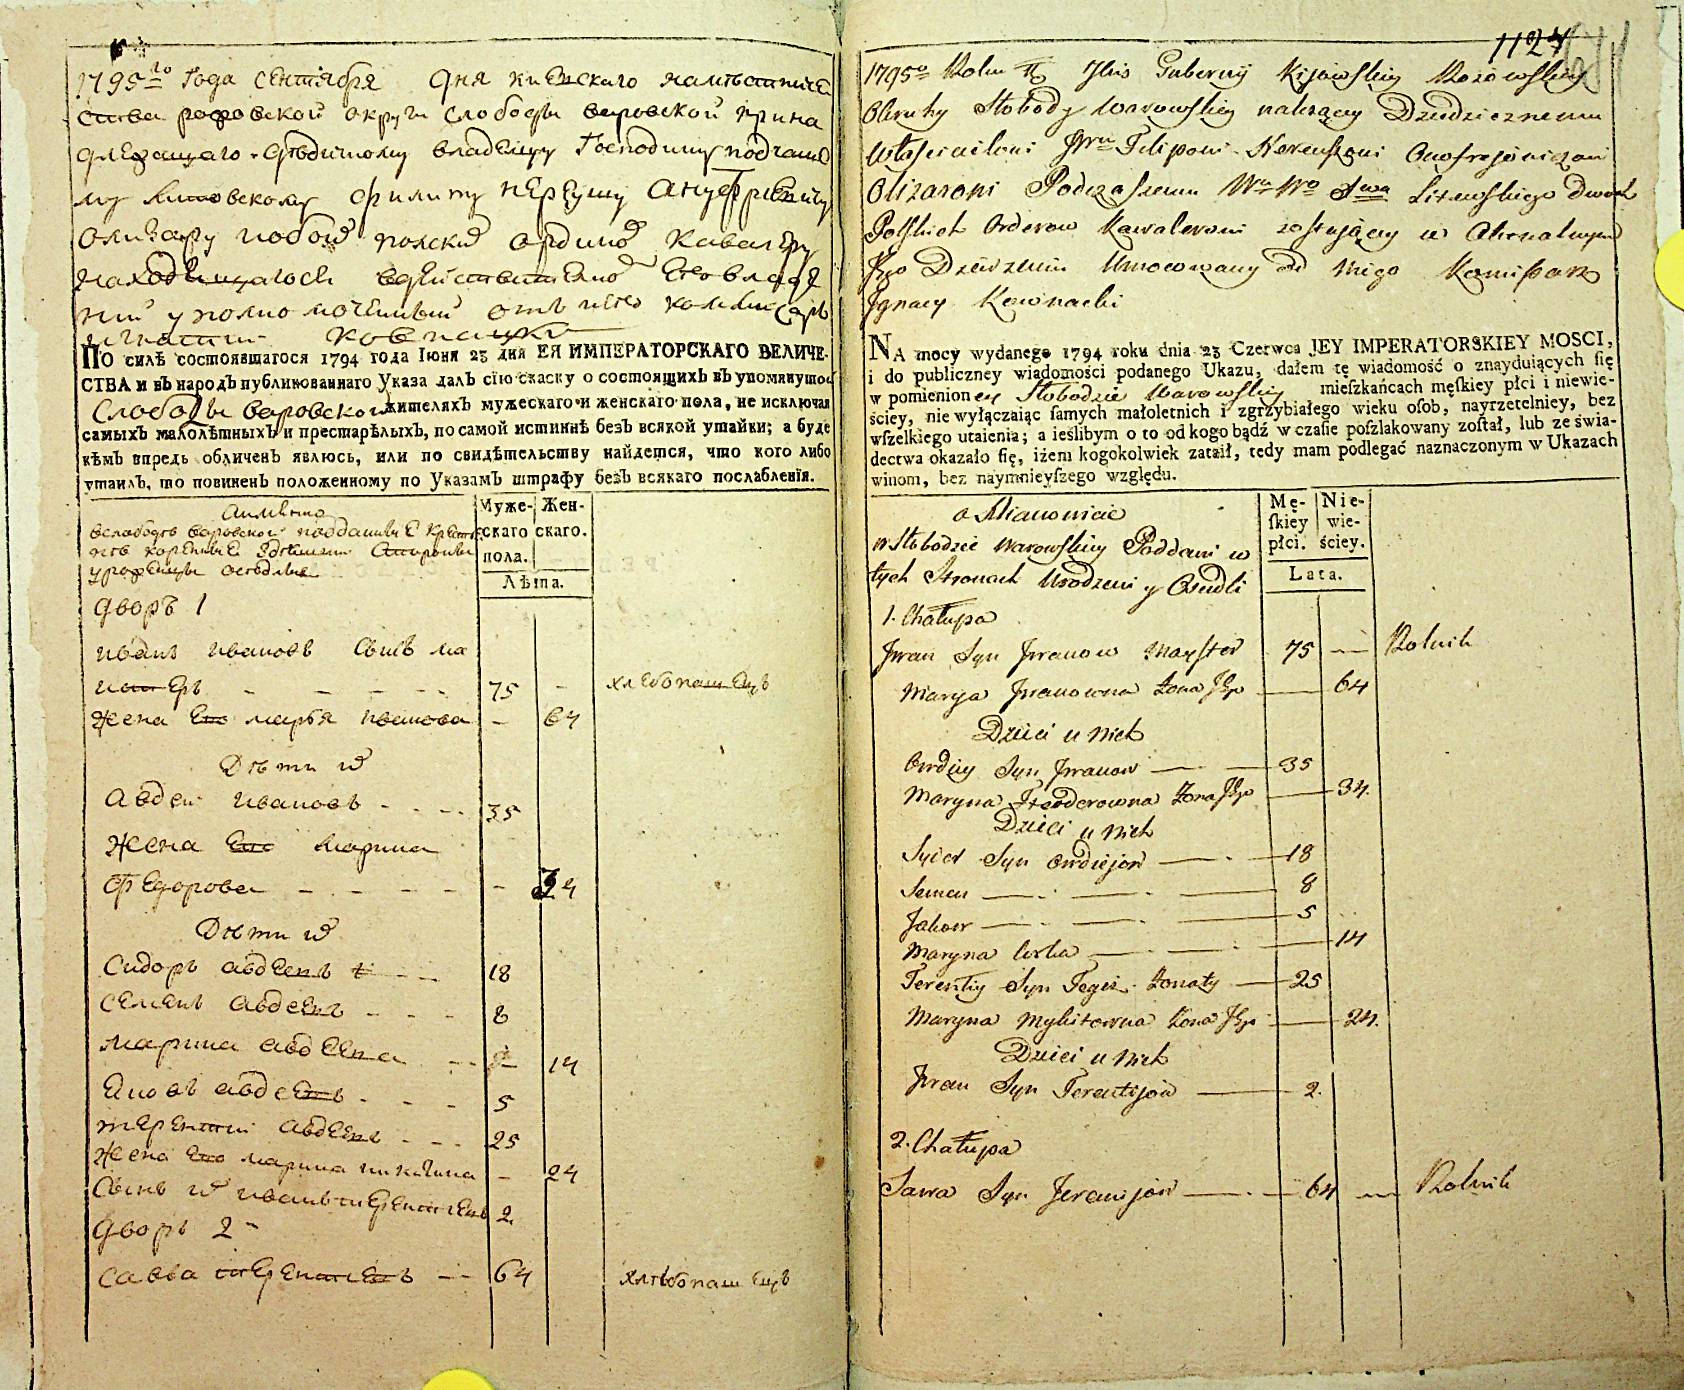 1795го Года сентября дня киевскаго намѣстниче
ства радовской округи слободы варовской прина
длежащаго дѣдичному владелцу Господину подчаше
му литовскому филипу нереушу ануфрievичу
олизару обоих полских ординов кавалеру
находящагося вдействителном его владе
нии уполномоченный отъ него коммисаръ
игнатий ковнацки
ПО силѣ состоявшагося 1794 года Іюня 23 дня ЕЯ ИМПЕРАТОРСКАГО ВЕЛИЧЕ-
СТВА и въ народъ публикованнаго Указа далъ сїю скаску о состоящихъ въ упомянутой
Слободы варовской жителяхъ мужескаго и женскаго пола, не исключая
самыхъ малолѣтныхъ и престарѣлыхъ, по самой истиннѣ безъ всякой утайки; а буде
кѣмъ впредь обличенъ явлюсь, или по свидѣтельству найдется, что кого либо
утаилъ, то повиненъ положенному по Указамъ штрафу безъ всякаго послабленїя.
Аимянно
вслободе варовской подданные кресть
яне коренные здешнии стороны
уроженцы оседлые
Муже-
скаго
пола.
Жен-
скаго.
Лѣта.
дворъ 1
иванъ ивановъ сынъ ма
йстеръ - - - - 75 - хлебопашецъ
жена его марья иванова - 64
Дѣти их
авдеи ивановъ - - - 35
жена его марина
федорова - - - - - 34
Дѣти их
сидоръ авдеевъ - - 18
семенъ авдеевъ - - - 8
марина авдеева - - - 14
яковъ авдеевъ - - - 5
терентии авдеевъ - - - 25
жена его марина никитина - 24
сынъ их иванъ терентиевъ 2
дворъ 2
савва терентиевъ - - 64 хлѣбопашецъ
1124
1795o Roku Jbris Gubernij Kijowskiey
Okruhy Słobody Warowskiey należącey Dziedzicznemu
Włascicielowi Filipowi Nereuszowi Onofrejowiczowi
Olizarowi Podczaszemu Litewskiego Dwoch
Polskich Orderow Kawalerowi zostającey w Aktualnym
Jego Dzierzeniu Umocowany od niego Komissarz
Jgnacy Kownacki
NA mocy wydanego 1794 roku dnia 23 Czerwca JEY IMPERATORSKIEY MOSCI,
i do publiczney wiadomości podanego Ukazu, dałem tę wiadomość o znayduiących ſię
w pomienioney Słobodzie Warowskiey mieſzkańcach męſkiey płci i niewie-
ściey, nie wyłączaiąc ſamych małoletnich i zgrzybiałego wieku oſob, nayrzetelniey, bez
wſzelkiego utaienia; a ieślibym o to od kogo bądź w czaſie poſzlakowany zoſtał, lub ze świa-
dectwa okazało ſię, iżem kogokolwiek zataił, tedy mam podlegać naznaczonym w Ukazach
winom, bez naymnieyſzego względu.
a Mianowicie
w Słobodzie Warowskiey Poddani w
tych Stronach Urodzeni y Osiedli
Mę-
ſkiey
płci.
Nie-
wie-
ściey.
Lata.
1. Chałupa
Jwan Syn Jwanow Mayster 75 — Rolnik
Marya Jwanowna Zona Jego — 64
Dzieci u nich
Owdiey Syn Jwanow — 35
Maryna Fteoderowna Zona Jego — 34.
Dzieci u nich
Sydor Syn Owdiejow — 18
Semen — 8
Jakow — 5
Maryna Corka — 14
Terentiy Syn Tegoz Zonaty — 25
Maryna Mykitowna Zona Jego — 24.
Dzieci u nich
Jwan Syn Terentijow — 2.
2. Chałupa
Sawa Syn Jeremijow — 64 — Rolnik